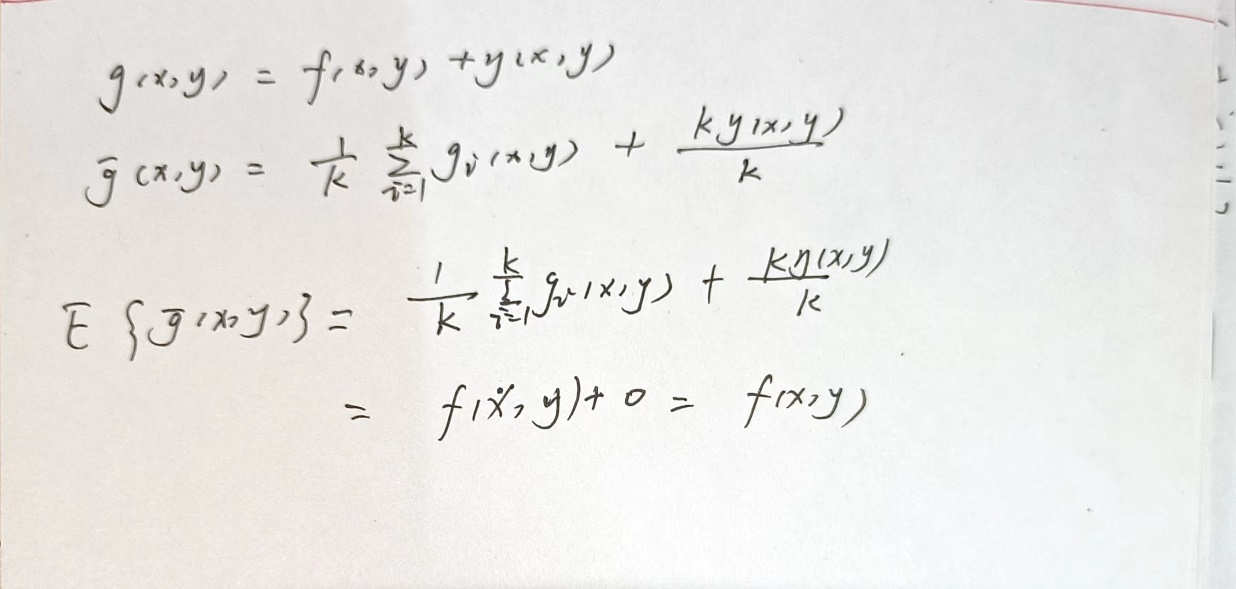 g(x,y) = f(x,y) + η(x,y)
ḡ(x,y) = 1/k ∑_{i=1}^{k} g_i(x,y) + kη(x,y)/k
E{ḡ(x,y)} = 1/k ∑_{i=1}^{k} g_i(x,y) + kη(x,y)/k
= f(x,y) + 0 = f(x,y)